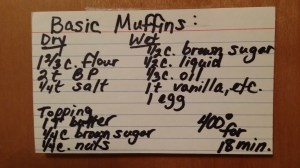 Basic Muffins:
Dry
1 2/3 c. flour
2 t BP
1/4 t salt
Wet
1/2 c. brown sugar
1/2 c. liquid
1/3 c. oil
1 t vanilla, etc.
1 egg
Topping
1 T butter
1/4 c brown sugar
1/4 c. nuts
400° for
18 min.